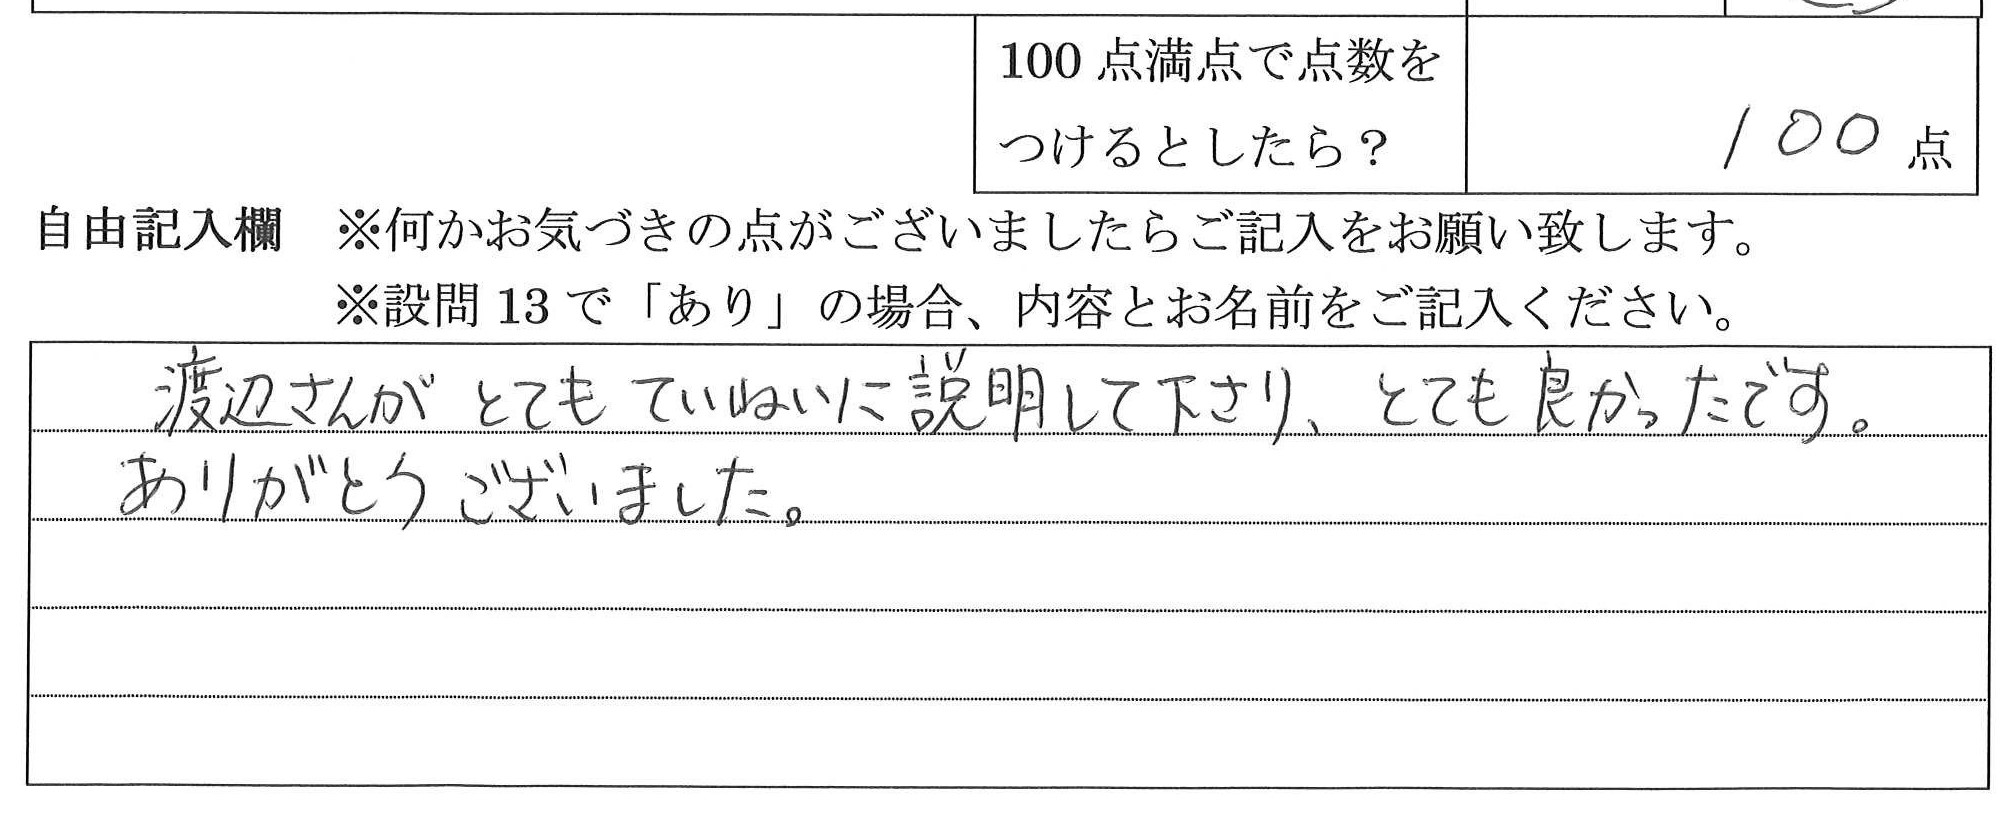 100 点満点で点数を
つけるとしたら？
100 点
自由記入欄　※何かお気づきの点がございましたらご記入をお願い致します。
※設問 13 で「あり」の場合、内容とお名前をご記入ください。
渡辺さんが とても ていねいに 説明して下さり、とても良かったです。
ありがとう ございました。